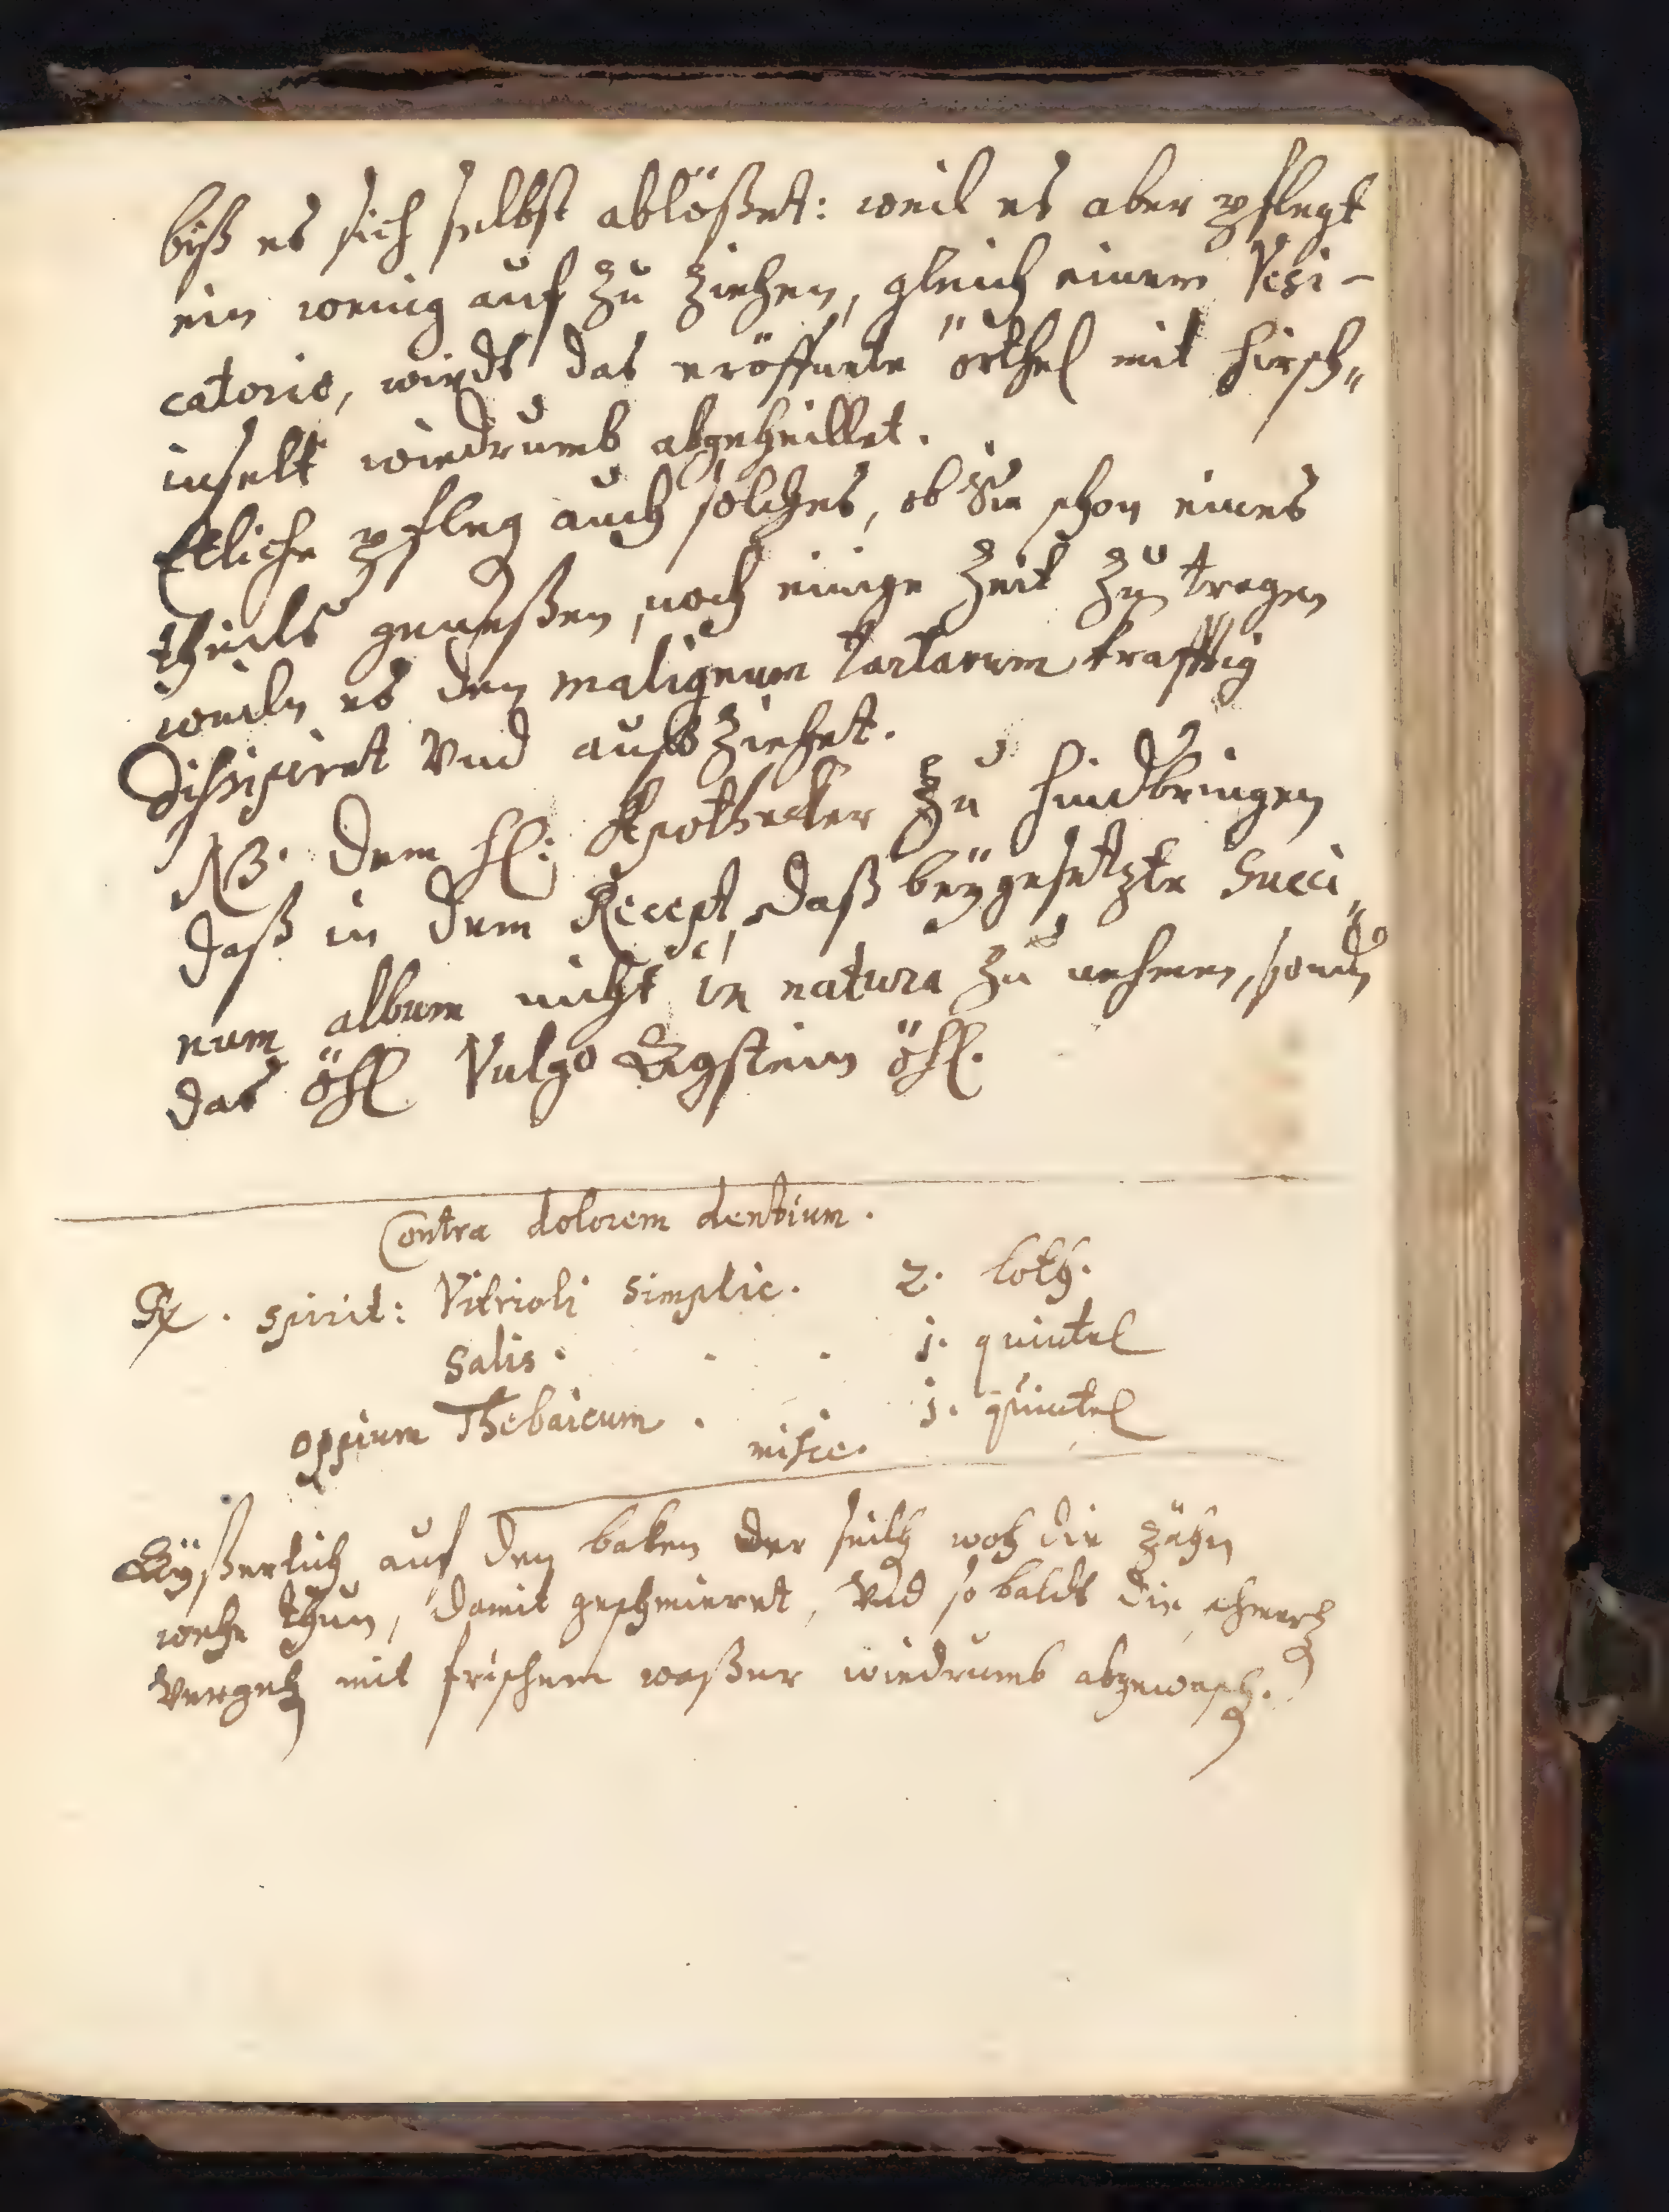 biß es sich selbst ablößet: weil es aber pflegt
ein wenig auf zu ziehen, gleich einem Vesi-
catorio, wirdt das eröffnete örthel mit hirsch„
inselt wiedrumb abgeheillet.
Etliche pfleg auch solches, ob Sie schon eines
theils geneßen, noch einige Zeit zu tragen
weiln es den malignum tartarum krafftig
dissipiret Vnd aussziehet.
NB. dem H: Apothecker zu hindbringen
daß in dem Recept, daß beÿgesetzte Succi„
num album nicht in natura zu nehmen, sondn
das öhl Vulgo Agstein öhl.
Contra dolorem dentium.
Rx. spirit: Vitrioli simplic. 2. loth.
Salis . . . j. quintel
oppium Thebaicum . . j. quintel
misce.
Aÿßerlich auf den baken der seith woh die zähn
wehe thun, damit geschmieret, Vnd so baldt die schmertz
Vergeh mit frischem waßer wiedrumb abgewasch.